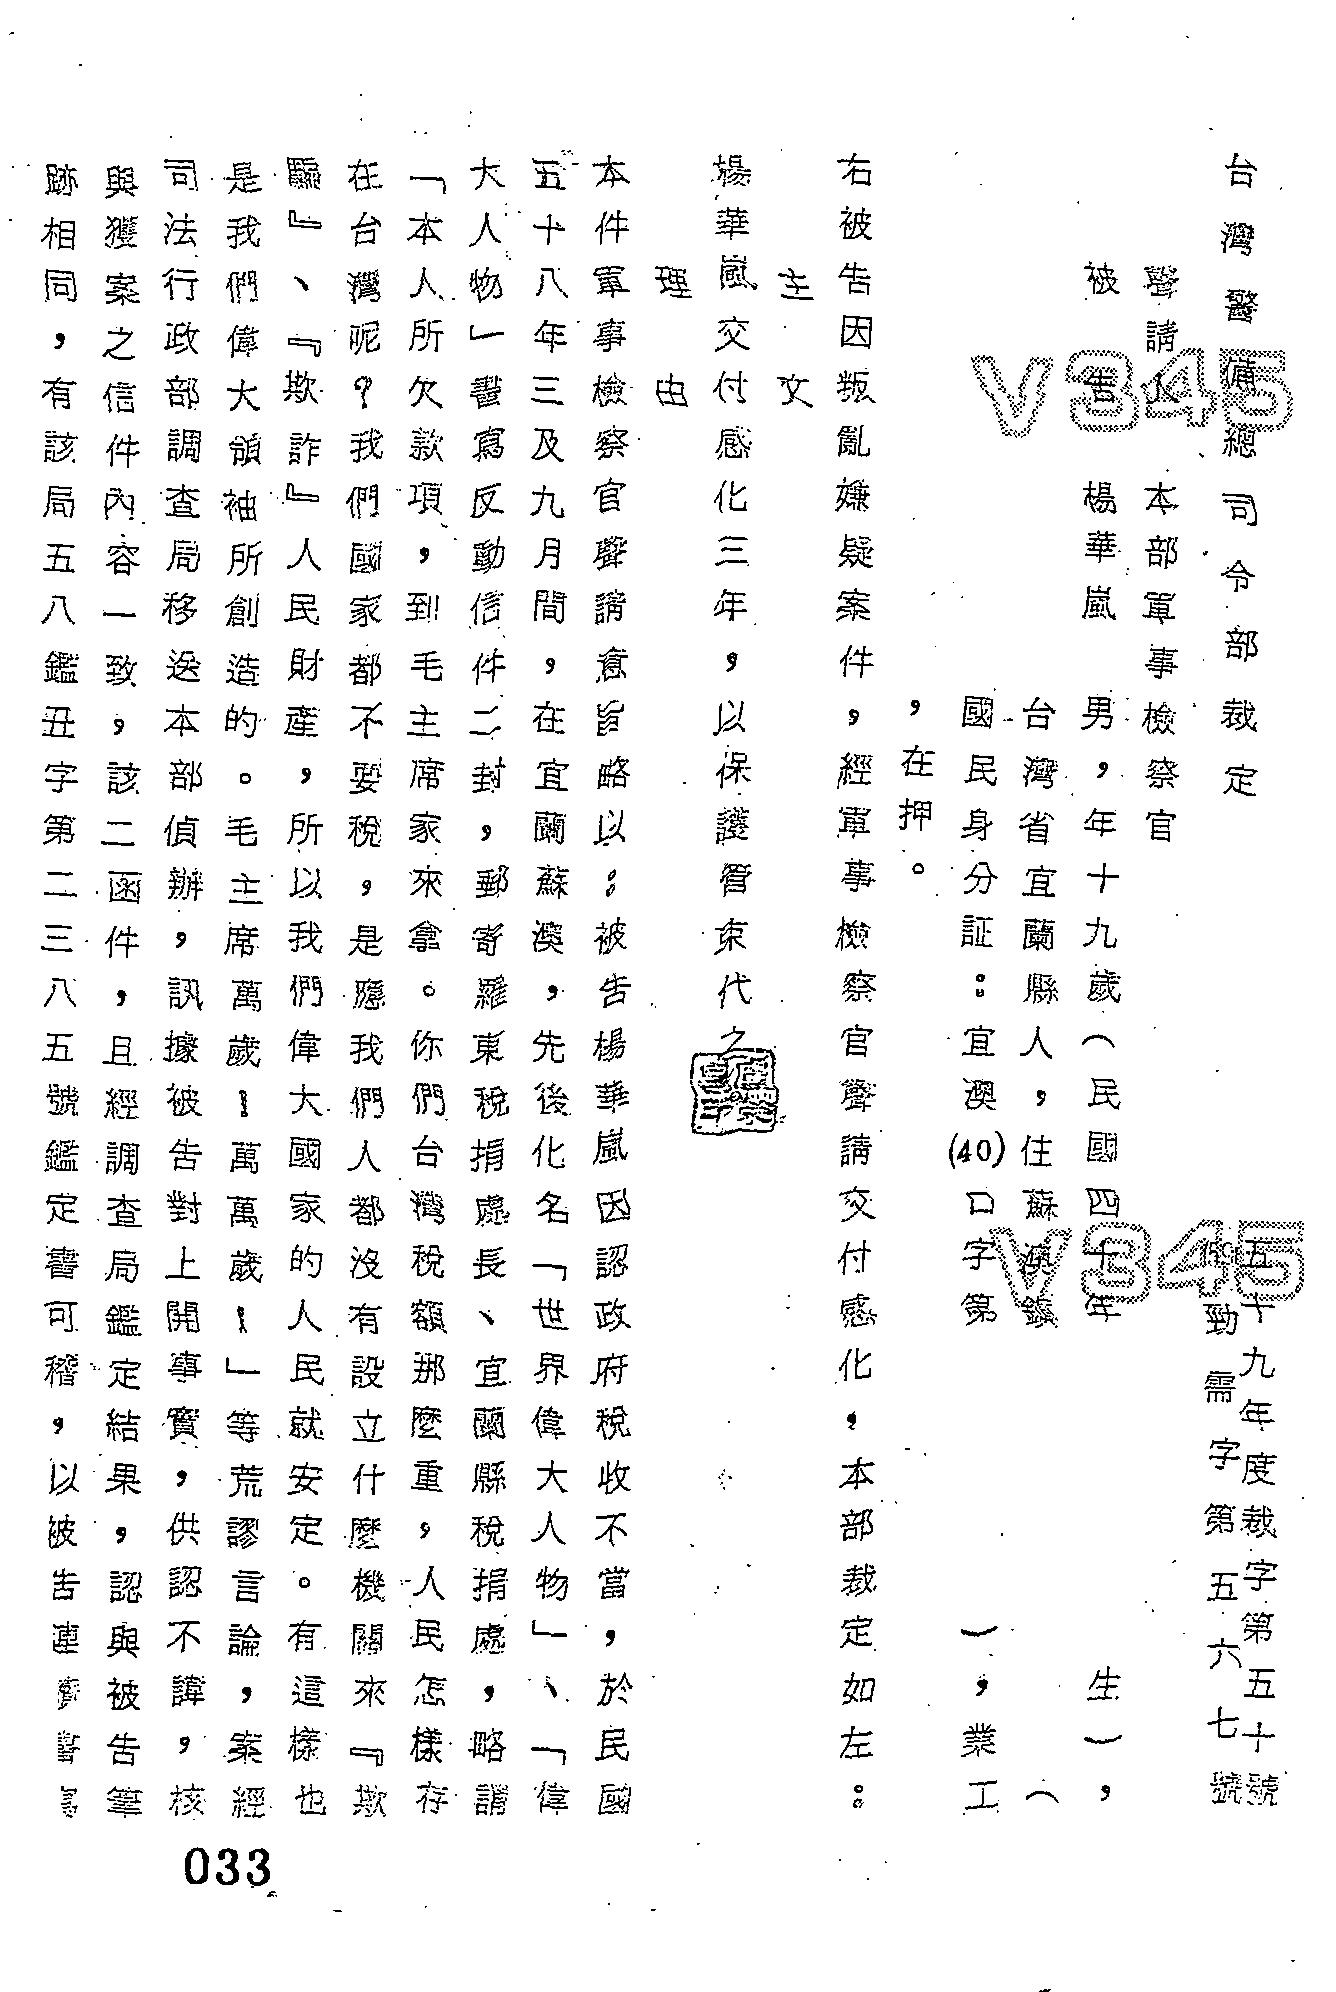 台灣警備總司令部裁定
五十九年度裁字第五十號
(59)勁需字第五六七號
聲請人　本部軍事檢察官
被告　楊華嵐　男，年十九歲（民國四十年　生），
台灣省宜蘭縣人，住蘇澳鎮（
國民身分証：宜澳(40)口字第　），業工
，在押。
右被告因叛亂嫌疑案件，經軍事檢察官聲請交付感化，本部裁定如左：
主文
楊華嵐交付感化三年，以保護管束代之
理由
本件軍事檢察官聲請意旨略以：被告楊華嵐因認政府稅收不當，於民國
五十八年三及九月間，在宜蘭蘇澳，先後化名「世界偉大人物」、「偉
大人物」書寫反動信件二封，郵寄羅東稅捐處長、宜蘭縣稅捐處，略謂
「本人所欠款項，到毛主席家來拿。你們台灣稅額那麼重，人民怎樣存
在台灣呢？我們國家都不要稅，是應我們人都沒有設立什麼機關來『欺
騙』、『欺詐』人民財產，所以我們偉大國家的人民就安定。有這樣也
是我們偉大領袖所創造的。毛主席萬歲！萬萬歲！」等荒謬言論，案經
司法行政部調查局移送本部偵辦，訊據被告對上開事實，供認不諱，核
與獲案之信件內容一致，該二函件，且經調查局鑑定結果，認與被告筆
跡相同，有該局五八鑑丑字第二三八五號鑑定書可稽，以被告連續書寫
033
V345
V345